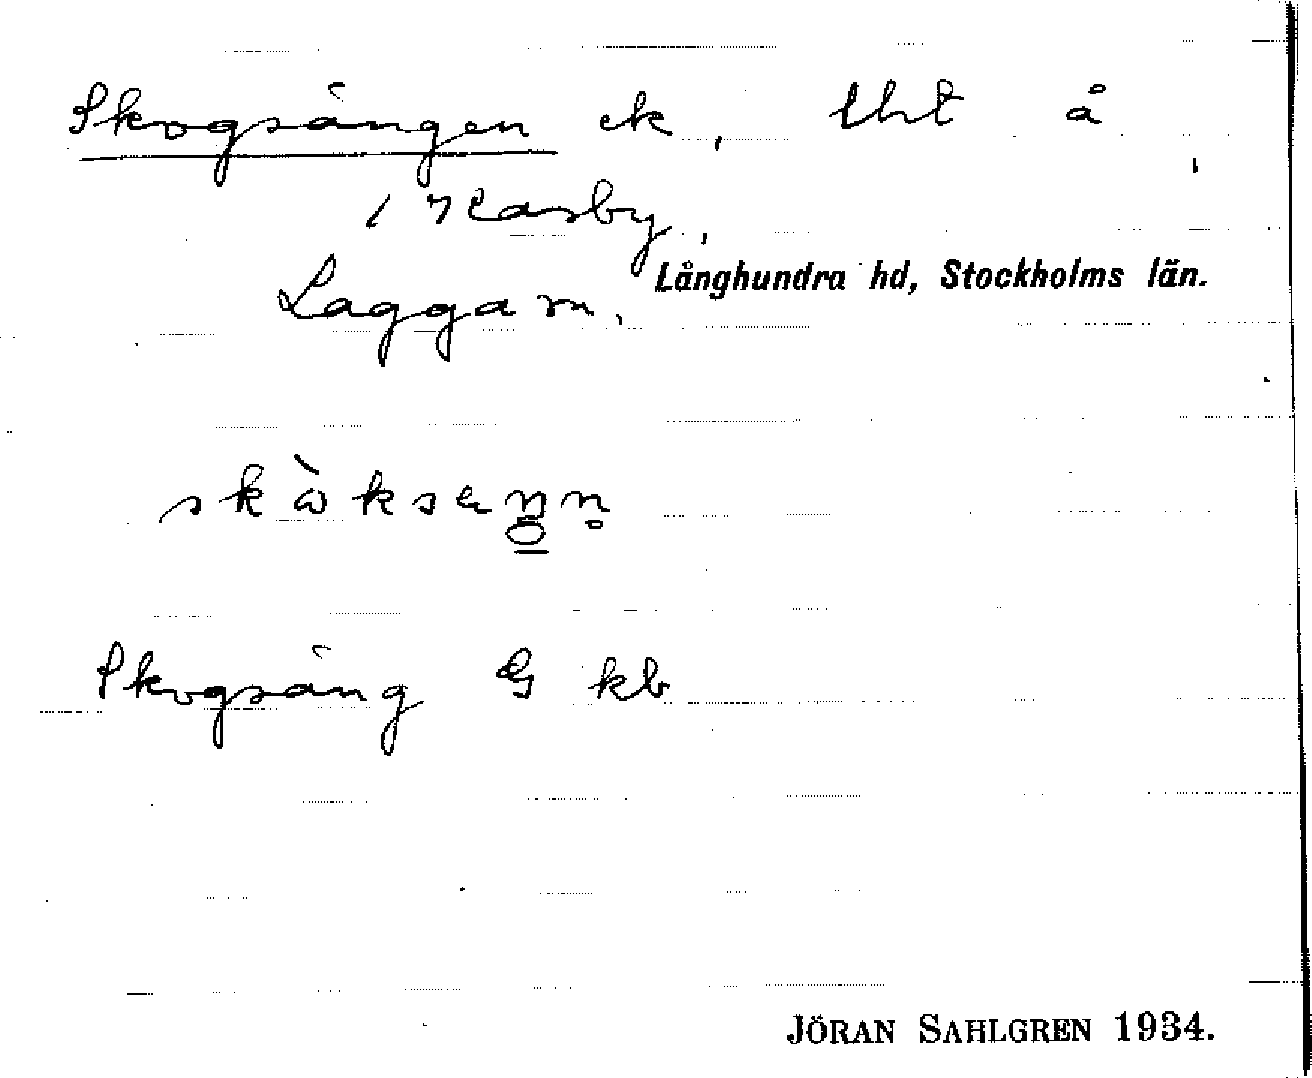 Skogsängen ek, tht å,
i Kasby,
Laggam, Långhundra hd, Stockholms län.
Skogsäng G kb
JÖRAN SAHLGREN 1934.